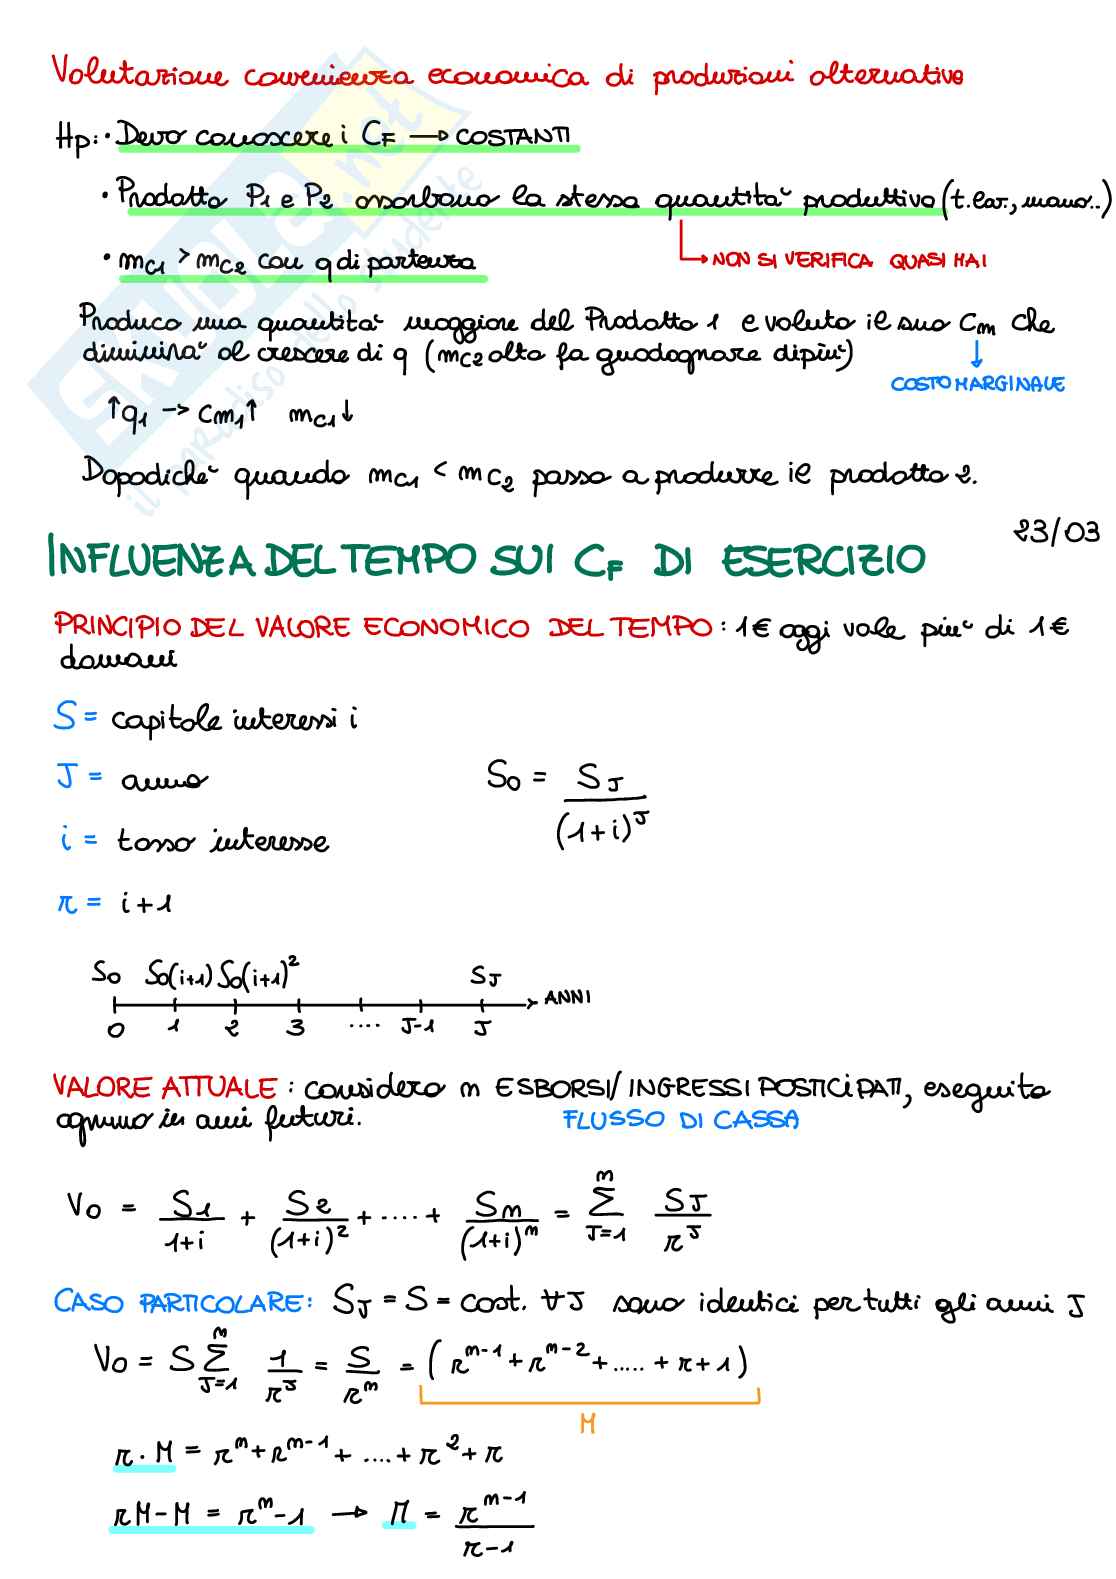 Valutazione convenienza economica di produzioni alternative
Hp: • Devo conoscere i CF → COSTANTI
• Prodotto P1 e P2 assorbano la stessa quantità produttiva (t.lav., mano..)
→ NON SI VERIFICA QUASI MAI
• mc1 > mc2 con q di partenza
Produco una quantità maggiore del Prodotto 1 e valuto il suo Cm che
diminuirà al crescere di q (mc2 alto fa guadagnare di più)
↓
COSTO MARGINALE
↑q1 → cm1↑ mc1↓
Dopodiché quando mc1 < mc2 passo a produrre il prodotto 2.
23/03
INFLUENZA DEL TEMPO SUI CF DI ESERCIZIO
PRINCIPIO DEL VALORE ECONOMICO DEL TEMPO: 1€ oggi vale più di 1€
domani
S = capitale interessi i
J = anno
S0 = SJ / (1+i)^J
i = tasso interesse
r = i+1
S0 S0(i+1) S0(i+1)^2 SJ
→ ANNI
0 1 2 3 .... J-1 J
VALORE ATTUALE: considero n ESBORSI/INGRESSI POSTICIPATI, eseguito
ognuno in anni futuri.
FLUSSO DI CASSA
V0 = S1/(1+i) + S2/(1+i)^2 + .... + Sn/(1+i)^n = Σ_{J=1}^{n} SJ/r^J
CASO PARTICOLARE: SJ = S = cost. ∀J sono identici per tutti gli anni J
V0 = S Σ_{J=1}^{n} 1/r^J = S/r^n = (r^{n-1} + r^{n-2} + ..... + r + 1)
M
r·M = r^n + r^{n-1} + .... + r^2 + r
rM-M = r^n-1 → M = r^{n-1}/(r-1)
SKUOLA.net
il paradiso dello studente